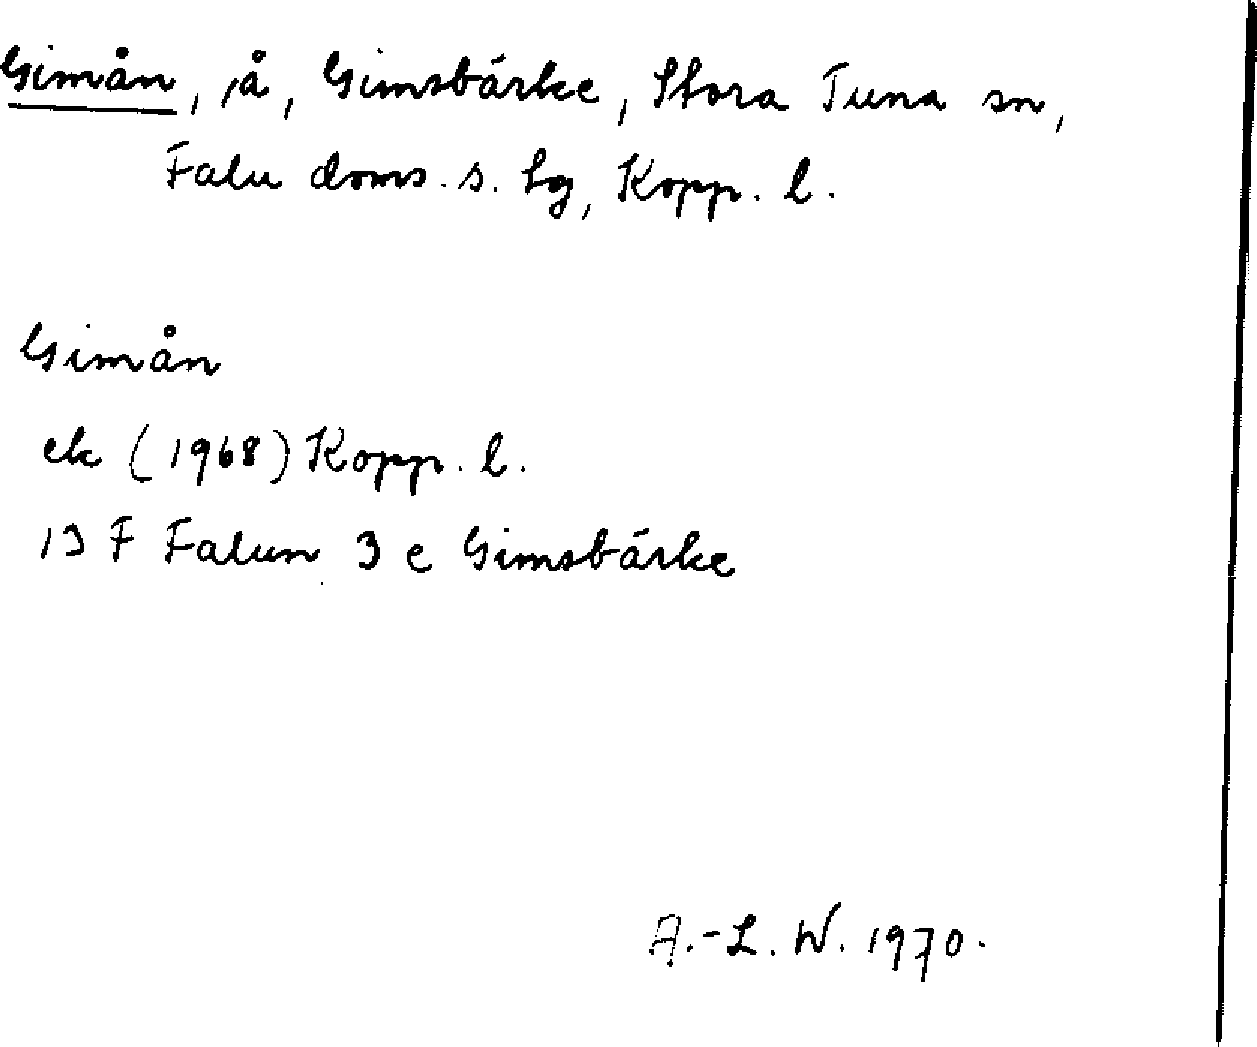 Gimån, å, Gimsbärke, Stora Tuna sn,
Falu doms. s. tg, Kopp. l.
Gimån
ek (1968) Kopp. l.
13 F Falun 3 e Gimsbärke
A.-L. W. 1970.